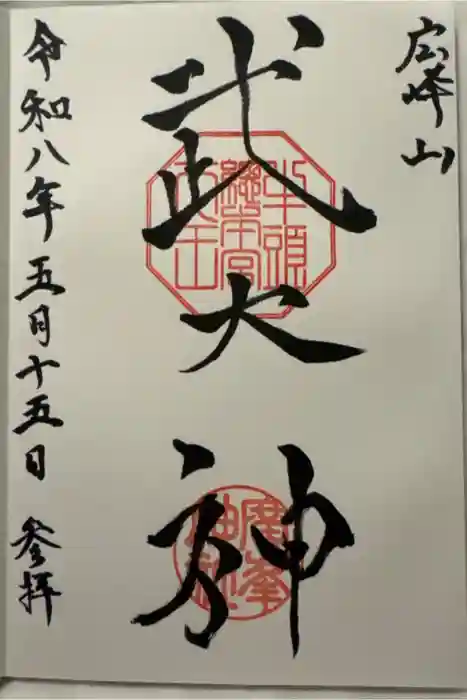 広峰山
武大神
牛頭
総本宮
天王
廣峯
神社
令和八年五月十五日 参拝